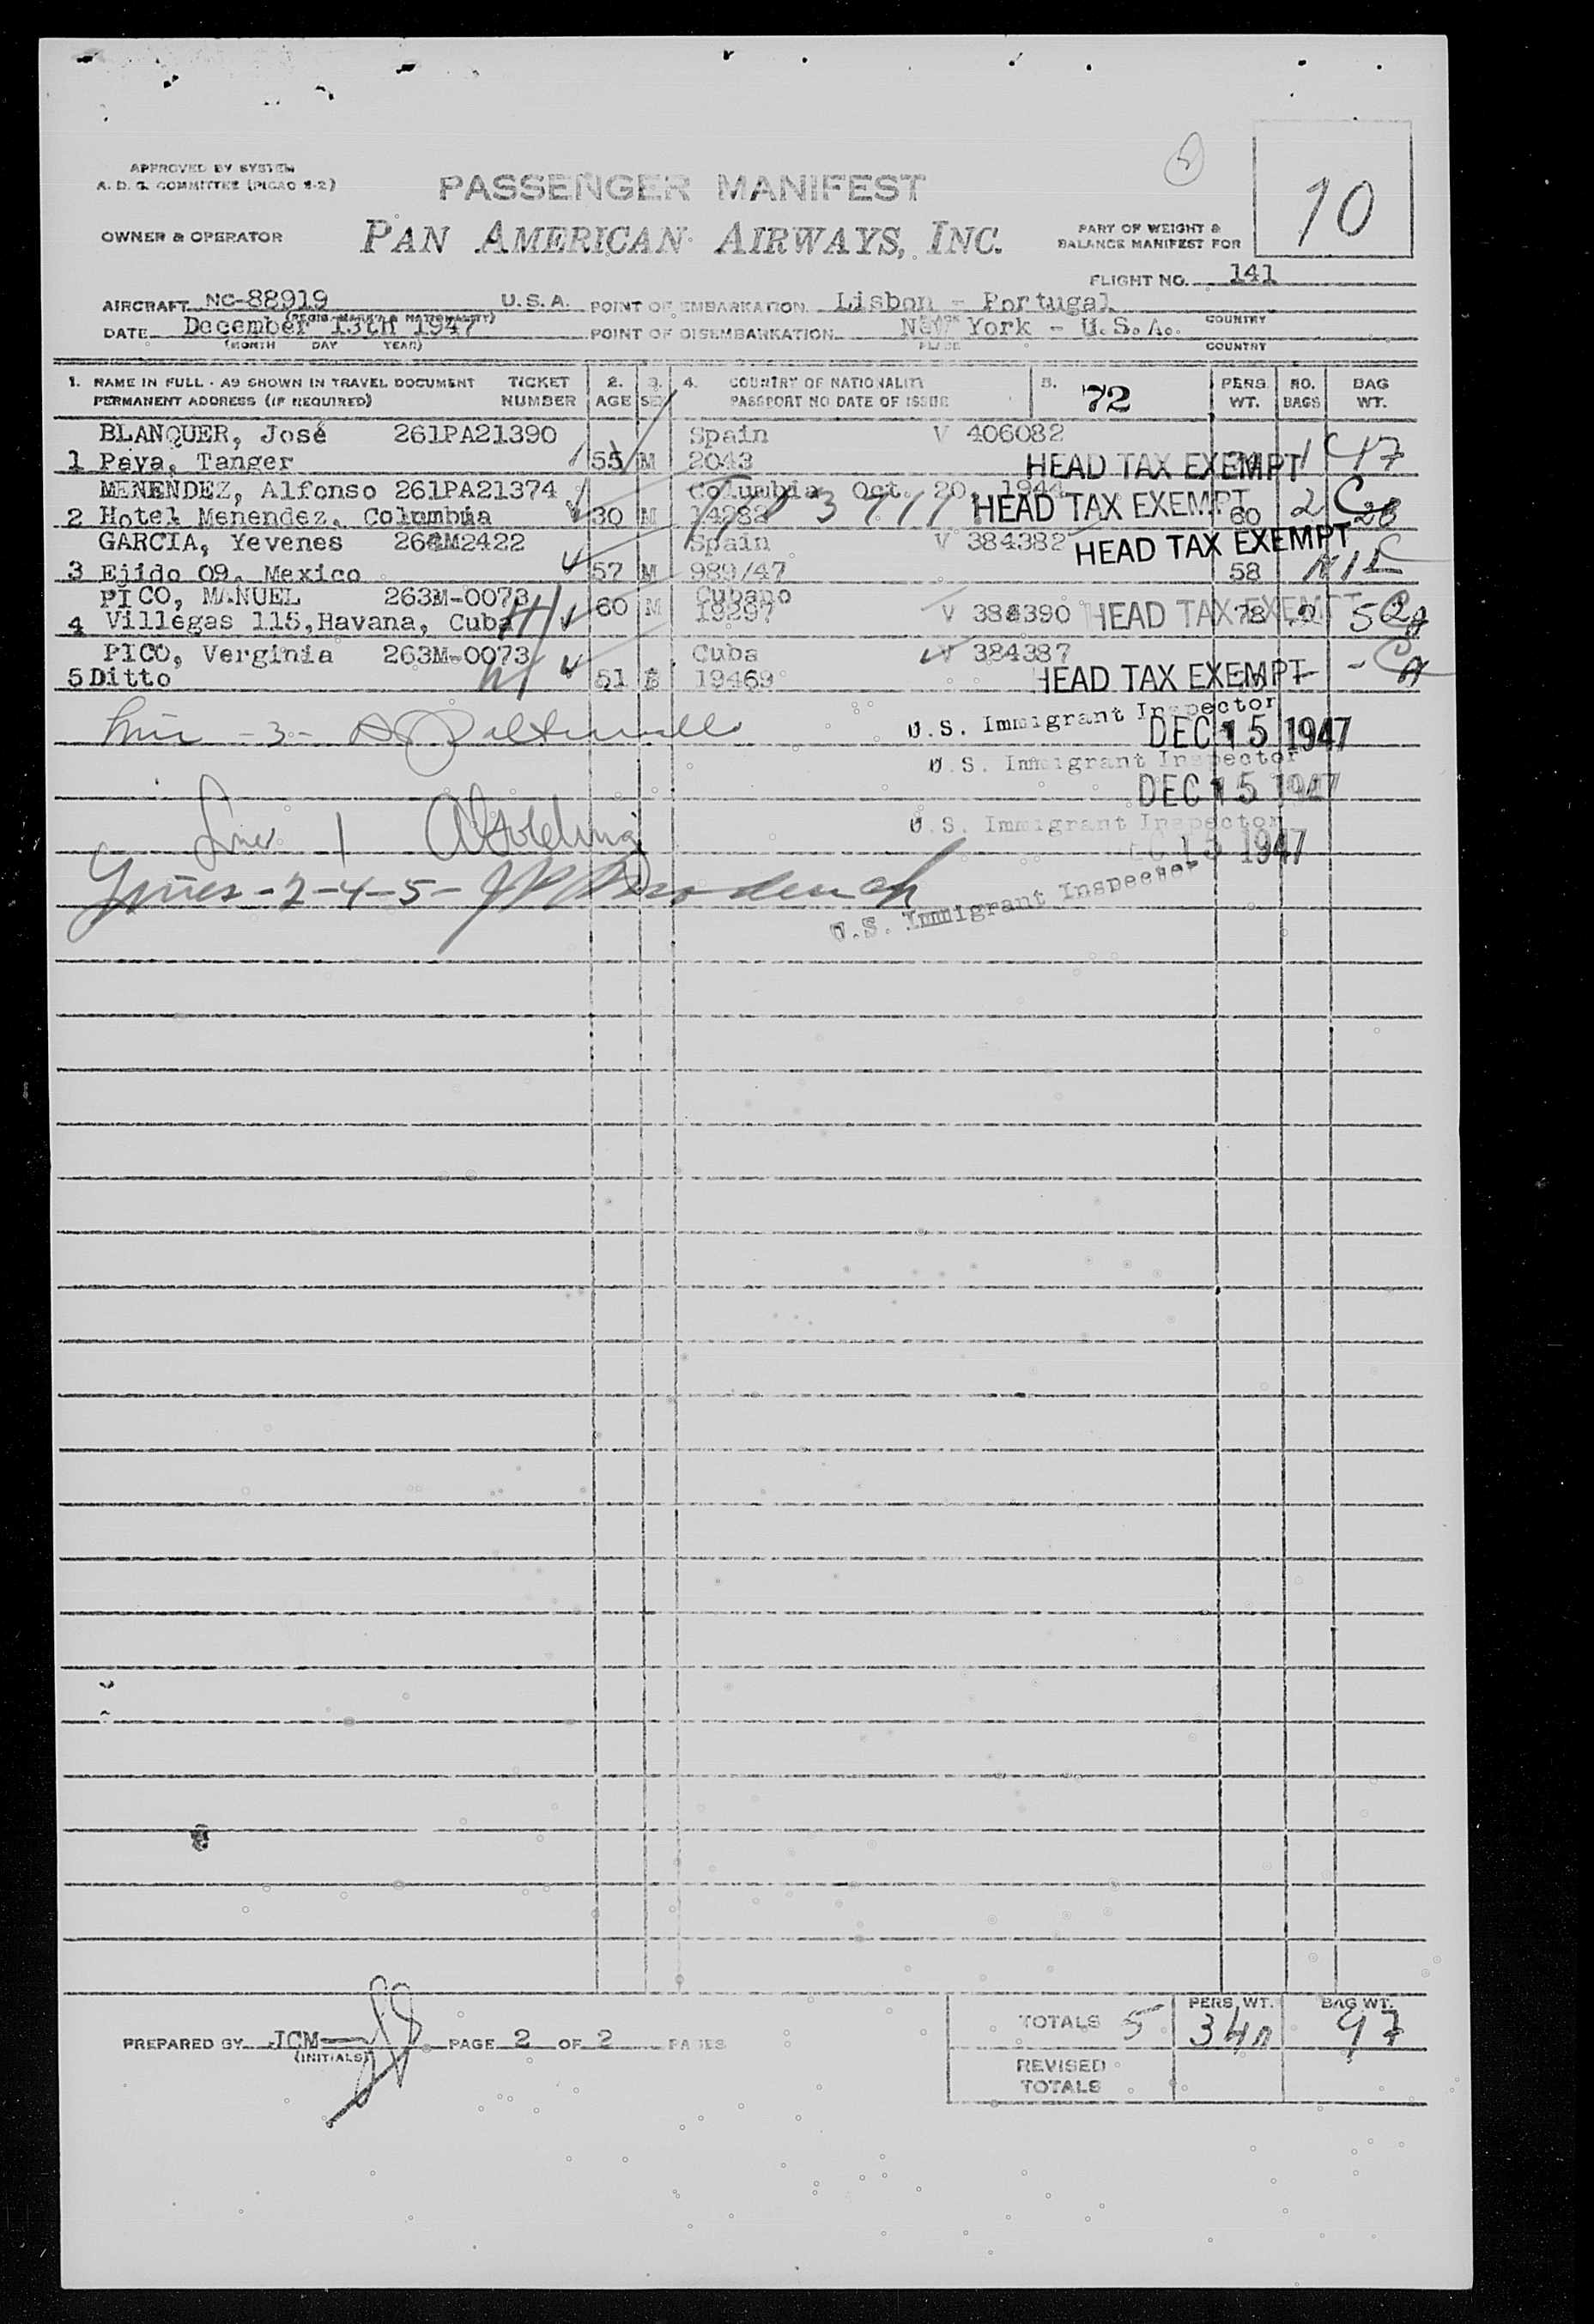 APPROVED BY SYSTEM
A. D. G. COMMITTEE (PICAO 9-2)
PASSENGER MANIFEST
10
OWNER & OPERATOR
PAN AMERICAN AIRWAYS, INC.
PART OF WEIGHT &
BALANCE MANIFEST FOR
FLIGHT NO. 141
AIRCRAFT NC-88919 U.S.A. POINT OF EMBARKATION Lisbon - Portugal
(REGIS. MARKS & NATIONALITY) COUNTRY
DATE December 13th 1947 POINT OF DISEMBARKATION New York - U.S.A.
(MONTH DAY YEAR) PLACE COUNTRY
1. NAME IN FULL - AS SHOWN IN TRAVEL DOCUMENT TICKET 2. 3. 4. COUNTRY OF NATIONALITY 5. 72 PERS. NO. BAG
PERMANENT ADDRESS (IF REQUIRED) NUMBER AGE SEX PASSPORT NO DATE OF ISSUE WT. BAGS WT.
BLANQUER, José 261PA21390 Spain V 406082
1 Paya, Tanger 55 M 2043 HEAD TAX EXEMPT 1 17
MENENDEZ, Alfonso 261PA21374 Columbia Oct. 20, 1944
2 Hotel Menendez, Columbia 30 M 14282 HEAD TAX EXEMPT 60 2 28
GARCIA, Yevenes 264M2422 Spain V 384382 HEAD TAX EXEMPT
3 Ejido 09, Mexico 57 M 989/47 58 NIL
PICO, MANUEL 263M-0073 Cubano
4 Villegas 115, Havana, Cuba 60 M 19297 V 384390 HEAD TAX EXEMPT 78
PICO, Verginia 263M-0073 Cuba V 384387
5 Ditto 51 19469 HEAD TAX EXEMPT
Line - 3 -
U.S. Immigrant Inspector
DEC 15 1947
U.S. Immigrant Inspector
DEC 15 1947
Line 1
U.S. Immigrant Inspector
15 1947
Lines - 2-4-5-
U.S. Immigrant Inspector
TOTALS 5 PERS. WT. 340 BAG WT. 97
PREPARED BY JCM PAGE 2 OF 2 PAGES
(INITIALS)
REVISED
TOTALS